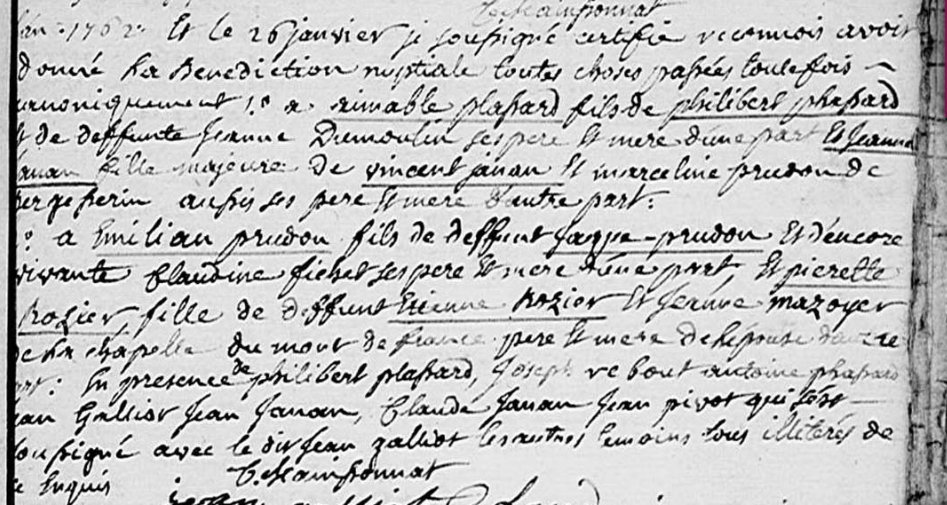 Champsonnat
L'an 1762. Et le 26 janvier je soussigné certifie reconnois avoir
donné La Benediction nuptiale toutes choses passées toutefois
canoniquement 1.° a aimable plassard fils de philibert plassard
et de deffunte Jeanne Dumoulin ses pere Et mere d'une part Et Jeanne
Janan fille majeure de vincent janan Et marceline prudon de
aussi ses pere Et mere d'autre part:
2.° a Emilian prudon fils de deffunt prudon Et d'encore
vivante Claudine fichet ses pere Et mere d'une part Et pierette
Rozier fille de deffunt Etienne Rozier Et Jeanne mazoyer
de La chapelle du mont de france pere Et mere de lepouse d'autre
part: En presence de philibert plassard, Joseph rebout antoine plassard
Jean Galliot Jean Janan, Claude Janan Jean pivot qui s'est
soussigné avec le dit Jean galliot les autres temoins tous illiterés de
ce Enquis
Champsonnat
jean galliot